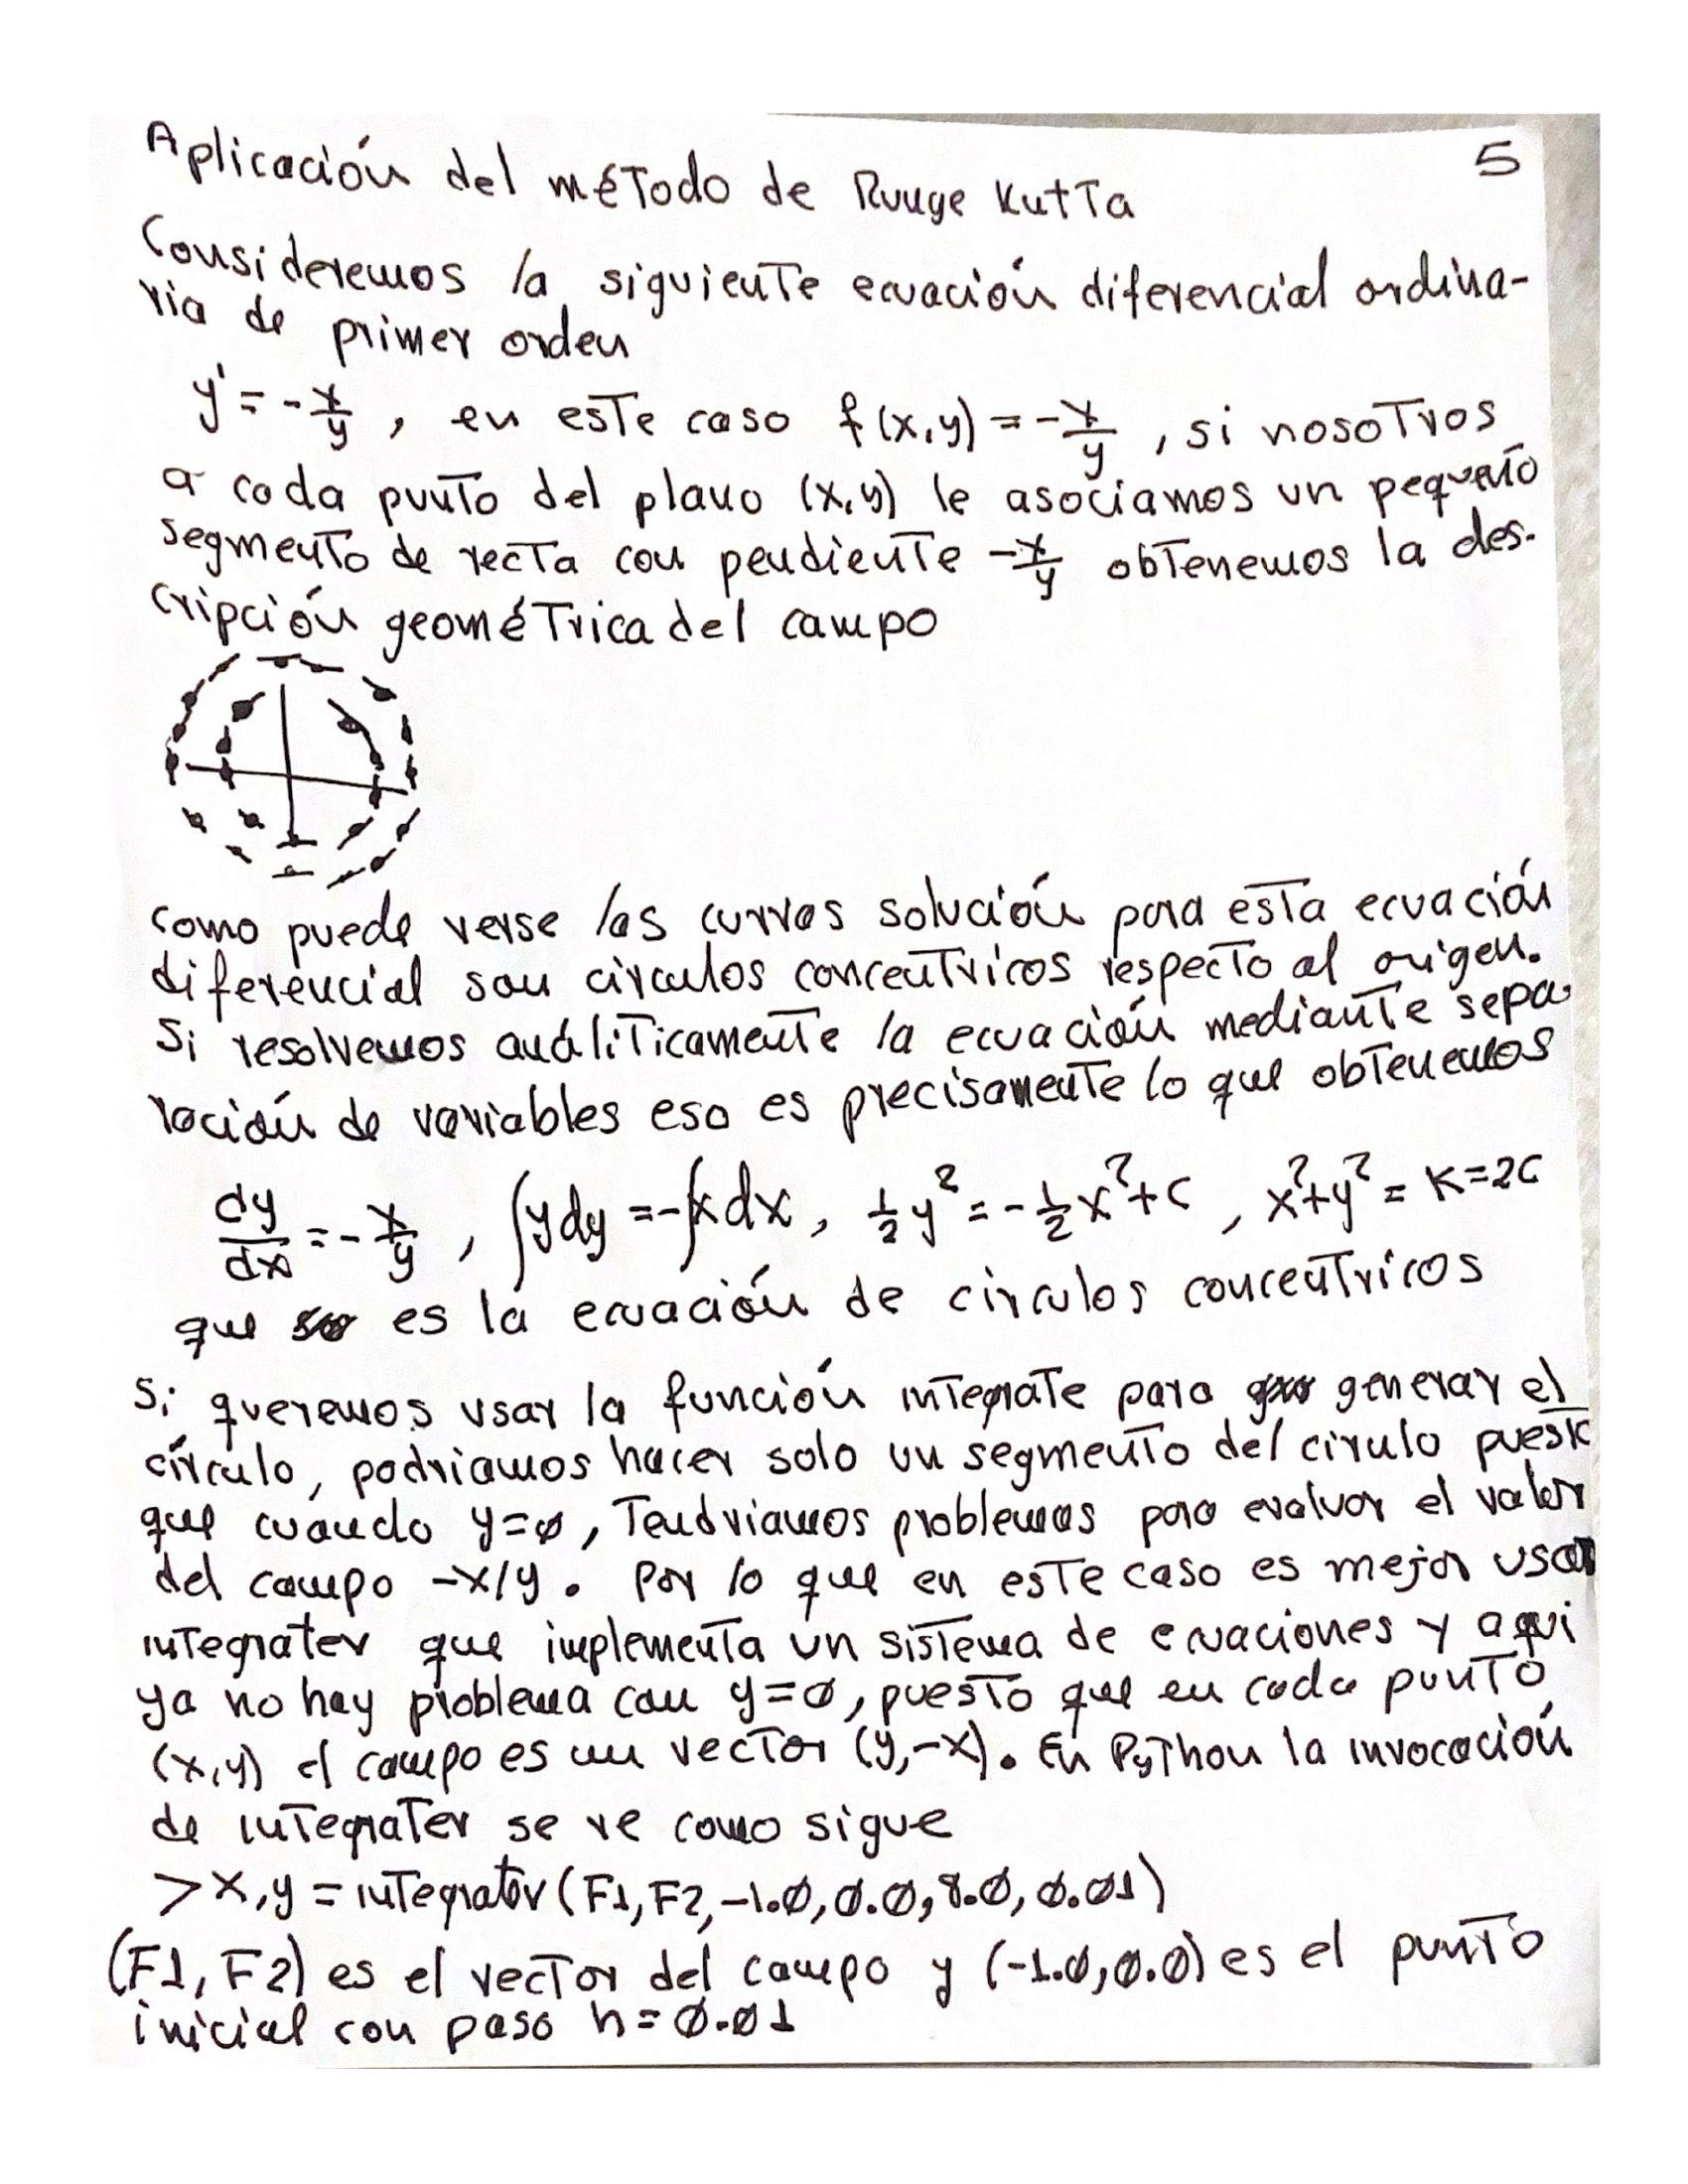 Aplicación del método de Runge Kutta
5
Consideremos la siguiente ecuación diferencial ordina-
ria de primer orden
y' = -x/y , en este caso f(x,y) = -x/y , si nosotros
a cada punto del plano (x,y) le asociamos un pequeño
segmento de recta con pendiente -x/y obtenemos la des-
cripción geométrica del campo
como puede verse las curvas solución para esta ecuación
diferencial son circulos concentricos respecto al origen.
Si resolvemos análiticamente la ecuación mediante sepa-
ración de variables eso es precisamente lo que obtenemos
dy/dx = -x/y , ∫ydy = -∫xdx, ½y² = -½x²+c , x²+y² = K=2C
que es la ecuación de circulos concentricos
Si queremos usar la función integrate para generar el
círculo, podriamos hacer solo un segmento del cirulo puesto
que cuando y=0, Tendriamos problemas para evaluar el valor
del campo -x/y. Por lo que en este caso es mejor usar
integrater que implementa un sistema de ecuaciones y aqui
ya no hay problema con y=0, puesto que en cada punto
(x,y) el campo es un vector (y,-x). En Python la invocación
de integrater se ve como sigue
> x,y = integrater(F1,F2,-1.0,0.0,8.0,0.01)
(F1, F2) es el vector del campo y (-1.0,0.0) es el punto
inicial con paso h=0.01